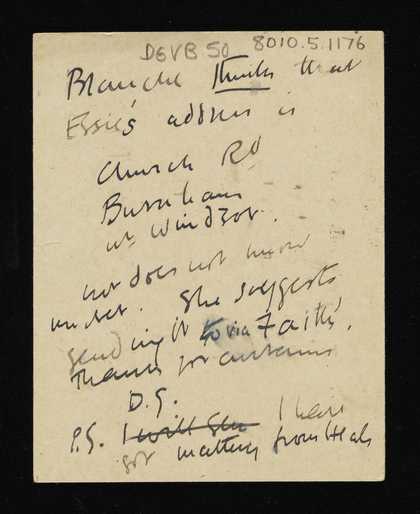 DGVB 50 8010.5.1176
Blanche thinks that
Essie's address is
Church Rd
Burnham
nr Windsor.
but does not know
number. She suggests
sending it to via Faith.
Thanks for curtains
D.G.
P.S. I will see I have
got matting from Heals